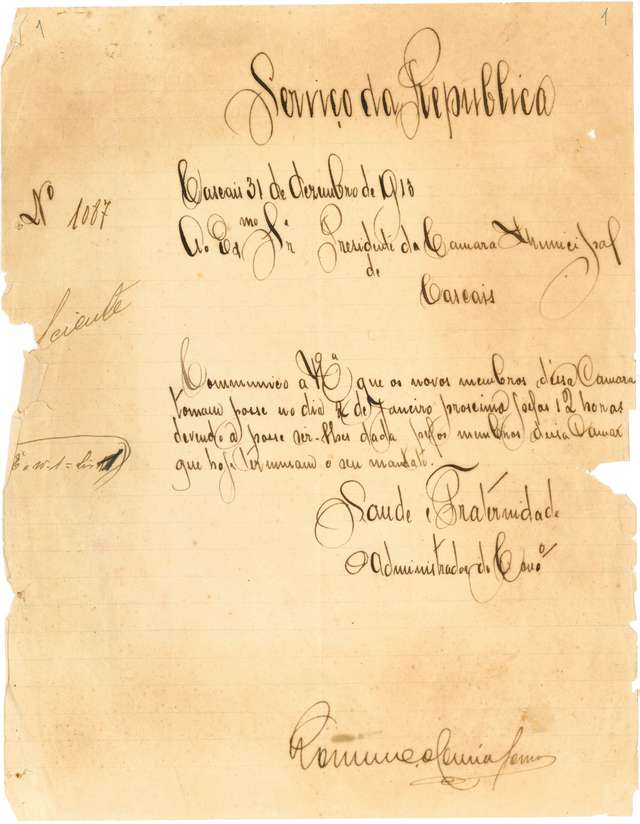 1 1
Serviço da Republica
Cascais 31 de Dezembro de 1913
Nº 1087
Ao Exmo Snr Presidente da Camara Municipal
de
Cascais
Sciente
Communico a V. Exª que os novos membros dessa Camara
tomam posse no dia 2 de Janeiro proximo pelas 12 horas
devendo a posse ser-lhes dada pelos membros dessa Camara
que hoje terminam o seu mandato.
Saude e Fraternidade
O Administrador do Concº